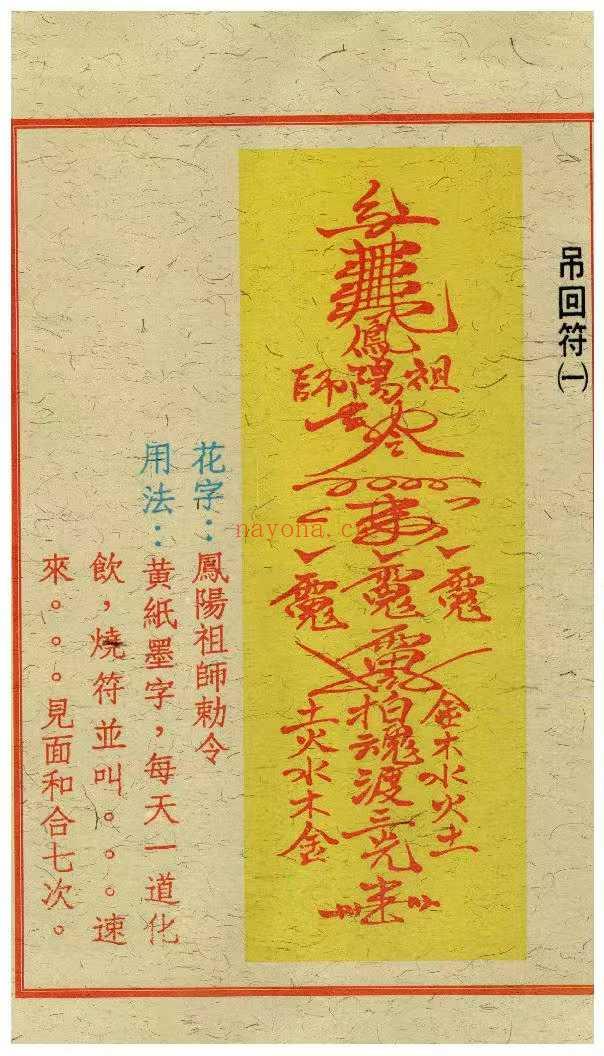 吊回符㈠
鳳
師陽祖
令
金木水火土
魂渡三光
土火水木金
花字：鳳陽祖師勅令
用法：黃紙墨字，每天一道化
飲，燒符並叫。。。速
來。。。見面和合七次。
nayona.c